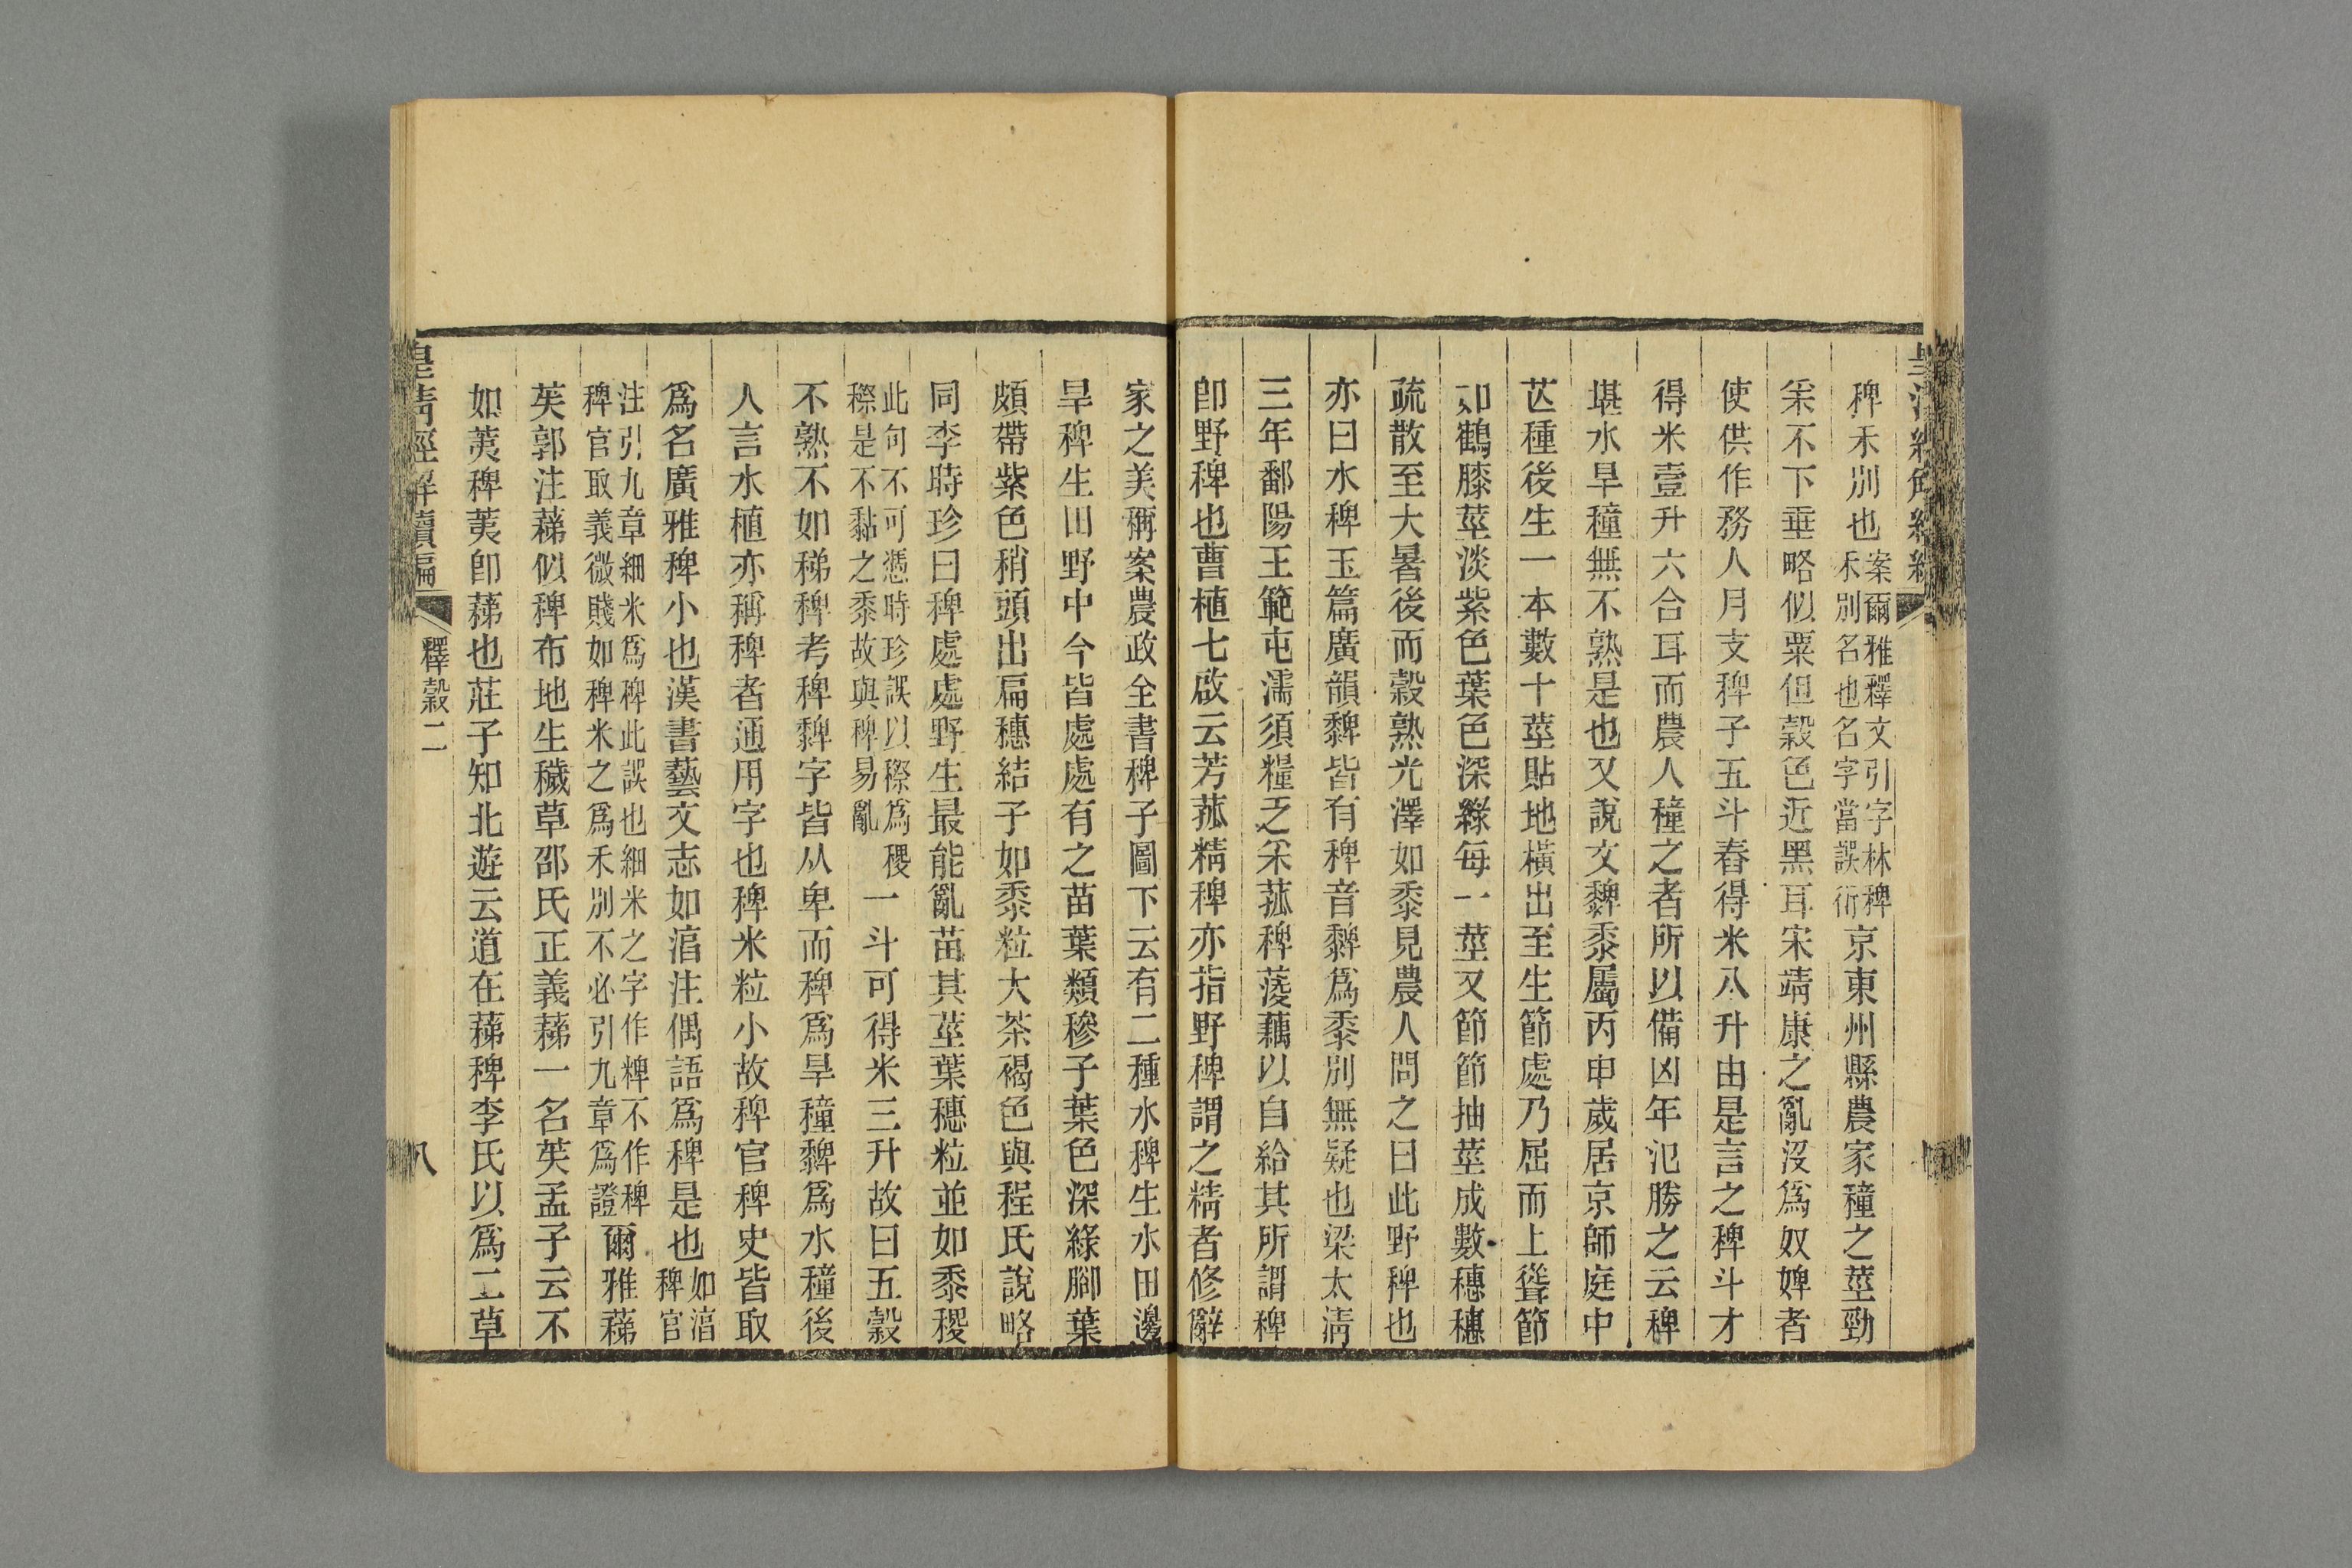 稗禾別也案爾雅釋文引字林稗禾別名也名字當誤衍京東州縣農家穜之莖勁
采不下垂略似粟但穀色近黑耳宋靖康之亂沒爲奴婢者
使供作務人月支稗子五斗舂得米八升由是言之稗斗才
得米壹升六合耳而農人穜之者所以備凶年氾勝之云稗
堪水旱穜無不熟是也又說文䵗黍屬丙申歲居京師庭中
芒種後生一本數十莖貼地橫出至生節處乃屈而上聳節
如鶴膝莖淡紫色葉色深綠每一莖又節節抽莖成數穗穗
疏散至大暑後而穀熟光澤如黍見農人問之曰此野稗也
亦曰水稗玉篇廣韻䵗皆有稗音䵗爲黍別無疑也梁太淸
三年鄱陽王範屯濡須糧乏采菰稗蔆藕以自給其所謂稗
卽野稗也曹植七啟云芳菰精稗亦指野稗謂之精者修辭
家之美稱案農政全書稗子圖下云有二種水稗生水田邊
旱稗生田野中今皆處處有之苗葉類穇子葉色深綠腳葉
頗帶紫色稍頭出扁穗結子如黍粒大茶褐色與程氏說略
同李時珍曰稗處處野生最能亂苗其莖葉穗粒並如黍稷
此句不可憑時珍誤以穄爲稷穄是不黏之黍故與稗易亂一斗可得米三升故曰五穀
不熟不如稊稗考稗䵗字皆从卑而稗爲旱穜䵗爲水穜後
人言水植亦稱稗者通用字也稗米粒小故稗官稗史皆取
爲名廣雅稗小也漢書藝文志如淳注偶語爲稗是也如淳稗官
注引九章細米爲稗此誤也細米之字作粺不作稗稗官取義微賤如稗米之爲禾別不必引九章爲證爾雅蕛
苵郭注蕛似稗布地生穢草邵氏正義蕛一名苵孟子云不
如荑稗荑卽蕛也莊子知北遊云道在蕛稗李氏以爲二草
皇淸經解續編
釋穀二
八